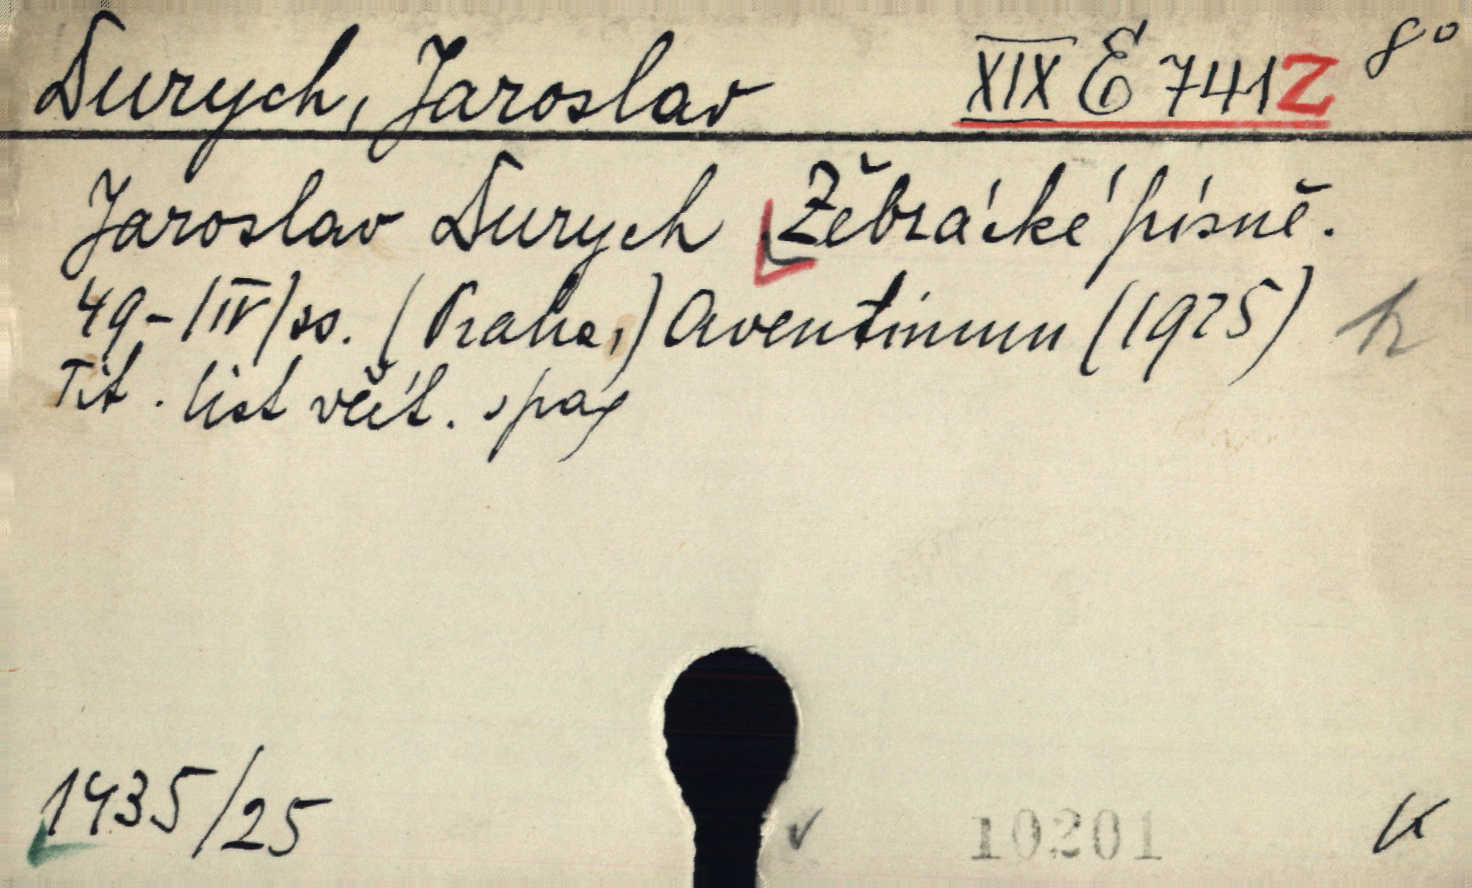 Durych, Jaroslav XIX E 741 Z 8°
Jaroslav Durych Žebrácké písně.
49-/IV/ss. (Praha,) Aventinum (1925)
Tit. list včít. spag
1435/25
10201 K